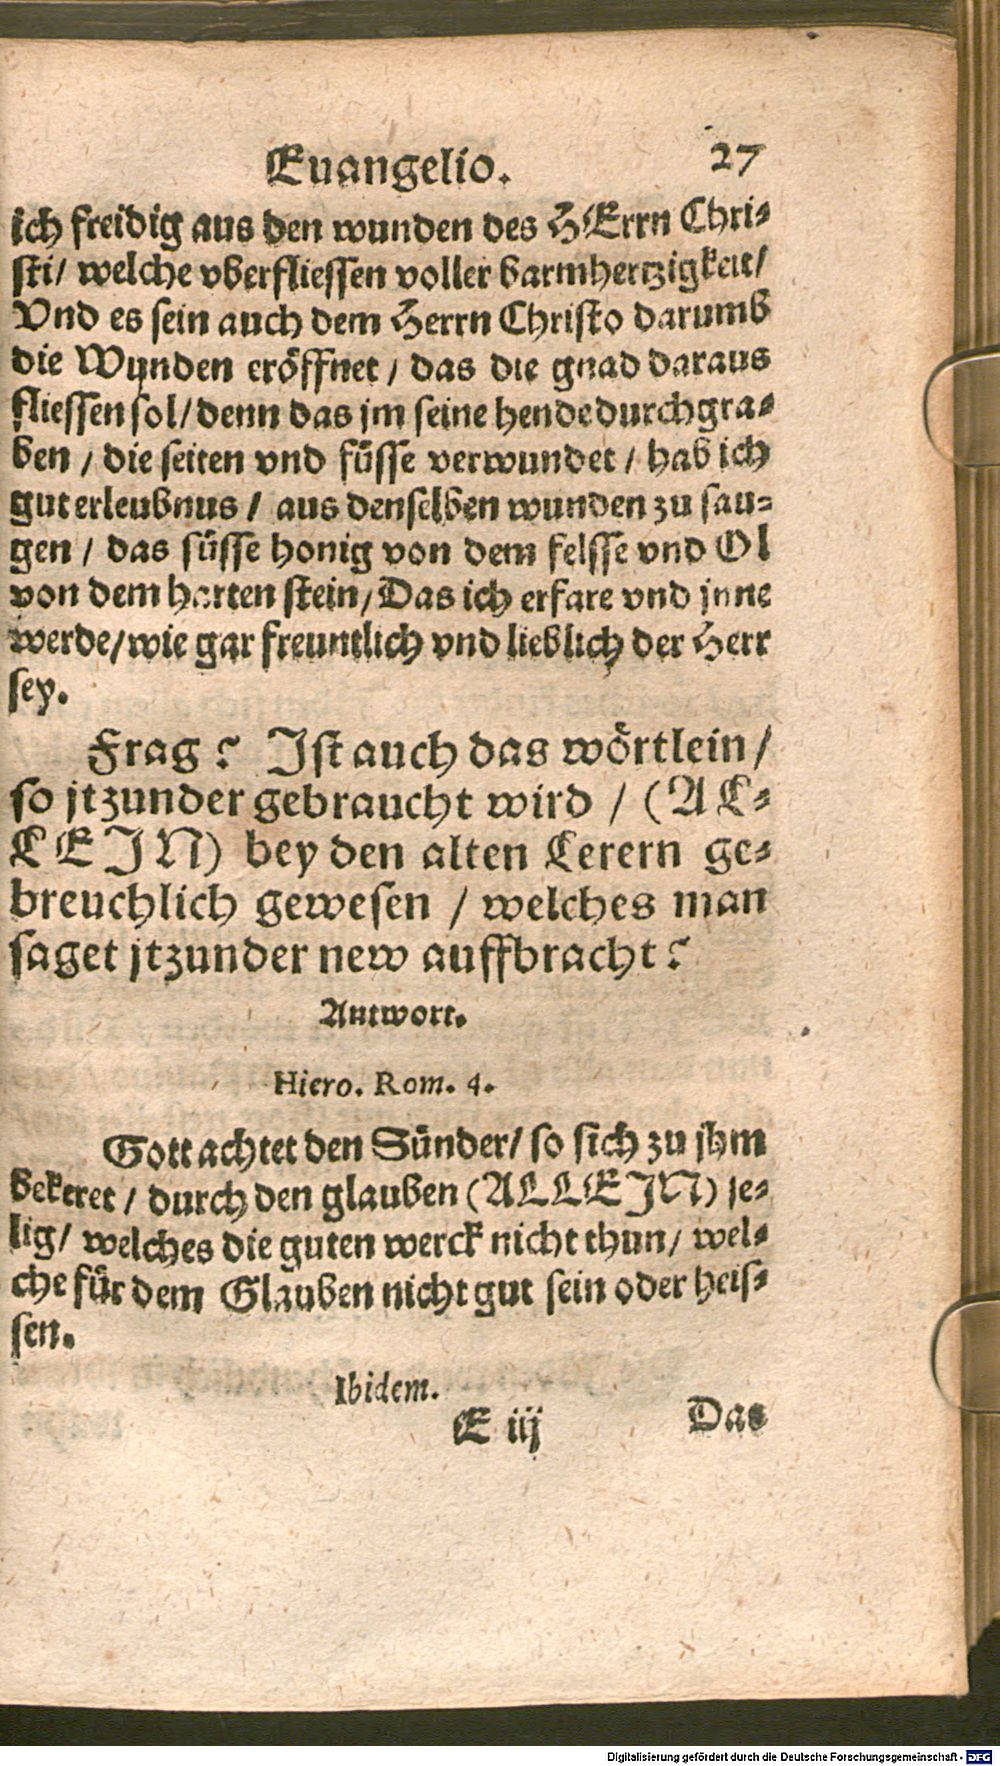 Euangelio. 27
ich freidig aus den wunden des HErrn Chri-
sti/ welche vberfliessen voller barmhertzigkeit/
Vnd es sein auch dem Herrn Christo darumb
die Wunden eröffnet / das die gnad daraus
fliessen sol/ denn das jm seine hende durchgra-
ben / die seiten vnd füsse verwundet / hab ich
gut erleubnus / aus denselben wunden zu sau-
gen / das süsse honig von dem felsse vnd Ol
von dem harten stein/ Das ich erfare vnd jnne
werde/ wie gar freuntlich vnd lieblich der Herr
sey.
Frag? Ist auch das wörtlein /
so jtzunder gebraucht wird / (AL-
LEIN) bey den alten Lerern ge-
breuchlich gewesen / welches man
saget jtzunder new auffbracht?
Antwort.
Hiero. Rom. 4.
Gott achtet den Sünder/ so sich zu jhm
bekeret / durch den glauben (ALLEIN) se-
lig/ welches die guten werck nicht thun/ wel-
che für dem Glauben nicht gut sein oder heis-
sen.
Ibidem.
E iij Das
Digitalisierung gefördert durch die Deutsche Forschungsgemeinschaft - DFG